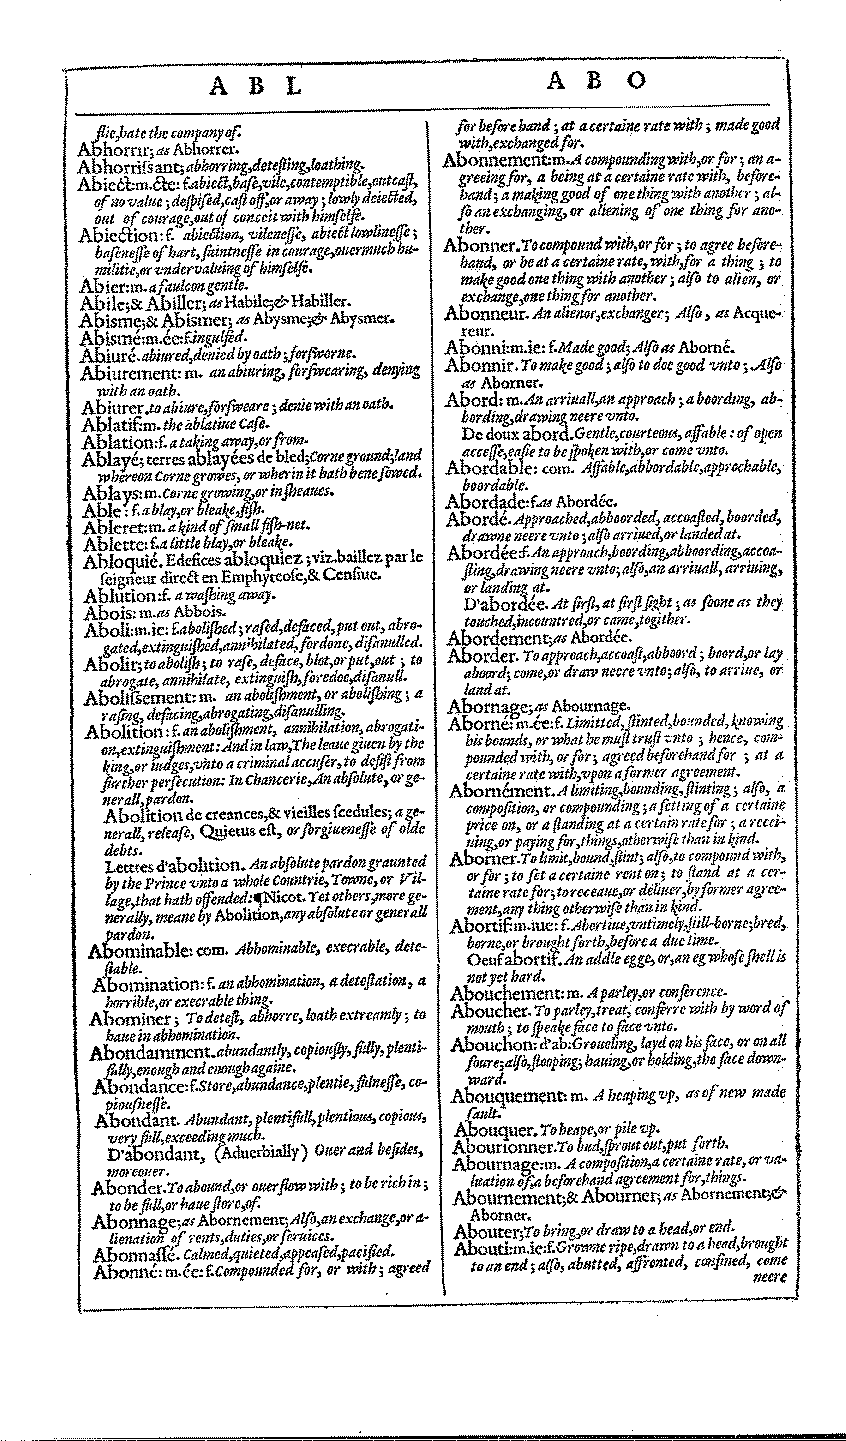 A B L
flie, hate the company of.
Abhorrir; as Abhorrer.
Abhorrissant; abhorring, detesting, loathing.
Abiect: m. cte: f. abiect, base, vile, contemptible, outcast,
of no value; despised, cast off, or away; lowly deiected,
out of courage, out of conceit with himselfe.
Abiection: f. abiection, vilenesse, abiect lowlinesse;
basenesse of hart, faintnesse in courage, ouermuch hu-
militie, or vndervaluing of himselfe.
Abier: m. a faulcon gentle.
Abile; & Abiller; as Habile; & Habiller.
Abisme; & Abismer; as Abysme; & Abysmer.
Abismé: m. ée: f. ingulfed.
Abiuré. abiured, denied by oath; forsworne.
Abiurement: m. an abiuring, forswearing, denying
with an oath.
Abiurer. to abiure, forsweare; denie with an oath.
Ablatif: m. the ablatiue Case.
Ablation: f. a taking away, or from.
Ablayé; terres ablayées de bled; Corne ground; land
whereon Corne growes, or wherin it hath bene sowed.
Ablays: m. Corne growing, or in sheaues.
Able: f. a blay, or bleake, fish.
Ableret: m. a kind of small fish-net.
Ablette: f. a little blay, or bleake.
Abloquié. Edefices abloquiez; viz. baillez par le
seigneur direct en Emphyteose, & Censiue.
Ablution: f. a washing away.
Abois: m. as Abbois.
Aboli: m. ie: f. abolished; rased, defaced, put out, abro-
gated, extinguished, annihilated, fordone, disanulled.
Abolir; to abolish; to rase, deface, blot, or put, out; to
abrogate, annihilate, extinguish, foredoe, disanull.
Abolissement: m. an abolishment, or abolishing; a
rasing, defacing, abrogating, disanulling.
Abolition: f. an abolishment, annihilation, abrogati-
on, extinguishment: And in law, The leaue giuen by the
king, or iudges, vnto a criminal accuser, to desist from
further persecution: In Chancerie, An absolute, or ge-
nerall, pardon.
Abolition de creances, & vieilles scedules; a ge-
nerall, release, Quietus est, or forgiuenesse of olde
debts.
Lettres d'abolition. An absolute pardon graunted
by the Prince vnto a whole Countrie, Towne, or Vil-
lage, that hath offended: ¶Nicot. Yet others, more ge-
nerally, meane by Abolition, any absolute or generall
pardon.
Abominable: com. Abhominable, execrable, dete-
stable.
Abomination: f. an abhomination, a detestation, a
horrible, or execrable thing.
Abominer; To detest, abhorre, loath extreamly; to
haue in abhomination.
Abondamment. abundantly, copiously, fully, plenti-
fully, enough and enough againe.
Abondance: f. Store, abundance, plentie, fulnesse, co-
piousnesse.
Abondant. Abundant, plentifull, plentious, copious,
very full, exceeding much.
D'abondant, (Aduerbially) Ouer and besides,
moreouer.
Abonder. To abound, or ouerflow with; to be rich in;
to be full, or haue store, of.
Abonnage; as Abornement; Also, an exchange, or a-
lienation of rents, duties, or seruices.
Abonnassé. Calmed, quieted, appeased, pacified.
Abonné: m. ée: f. Compounded for, or with; agreed
A B O
for before hand; at a certaine rate with; made good
with, exchanged for.
Abonnement: m. A compounding with, or for; an a-
greeing for, a being at a certaine rate with, before-
hand; a making good of one thing with another; al-
so an exchanging, or aliening of one thing for ano-
ther.
Abonner. To compound with, or for; to agree before-
hand, or be at a certaine rate, with, for a thing; to
make good one thing with another; also to alien, or
exchange, one thing for another.
Abonneur. An alienor, exchanger; Also, as Acque-
reur.
Abonni: m. ie: f. Made good; Also as Aborné.
Abonnir. To make good; also to doe good vnto; Also
as Aborner.
Abord: m. An arriuall, an approach; a boording, ab-
bording, drawing neere vnto.
De doux abord. Gentle, courteous, affable: of open
accesse, easie to be spoken with, or come vnto.
Abordable: com. Affable, abbordable, approchable,
boordable.
Abordade: f. as Abordée.
Abordé. Approached, abboorded, accoasted, boorded,
drawne neere vnto; also arriued, or landed at.
Abordée: f. An approach, boording, abboording, accoa-
sting, drawing neere vnto; also, an arriuall, arriuing,
or landing at.
D'abordée. At first, at first sight; as soone as they
touched, incountred, or came, together.
Abordement; as Abordée.
Aborder. To approach, accoast, abboord; boord, or lay
aboord; come, or draw neere vnto; also, to arriue, or
land at.
Abornage; as Abournage.
Aborné: m. ée: f. Limitted, stinted, bounded, knowing
his bounds, or what he must trust vnto; hence, com-
pounded with, or for; agreed beforehand for; at a
certaine rate with, vpon a former agreement.
Abornément. A limiting, bounding, stinting; also, a
composition, or compounding; a setting of a certaine
price on, or a standing at a certain rate for; a recei-
uing, or paying for, things, otherwise than in kind.
Aborner. To limit, bound, stint; also, to compound with,
or for; to set a certaine rent on; to stand at a cer-
taine rate for; to receaue, or deliuer, by former agree-
ment, any thing otherwise than in kind.
Abortif: m. iue: f. Abortiue, vntimely, still-borne; bred,
borne, or brought forth, before a due time.
Oeuf abortif. An addle egge, or, an eg whose shell is
not yet hard.
Abouchement: m. A parley, or conference.
Aboucher. To parley, treat, conferre with by word of
mouth; to speake face to face vnto.
Abouchon: d'ab: Groueling, layd on his face, or on all
foure; also, stooping; hauing, or holding, the face down-
ward.
Abouquement: m. A heaping vp, as of new made
sault.
Abouquer. To heape, or pile vp.
Abourionner. To bud, sprout out, put forth.
Abournage: m. A composition, a certaine rate, or va-
luation of, a beforehand agreement for, things.
Abournement; & Abourner; as Abornement; &
Aborner.
Abouter; To bring, or draw to a head, or end.
Abouti: m. ie: f. Growne ripe, drawn to a head, brought
to an end; also, abutted, affronted, confined, come
neere